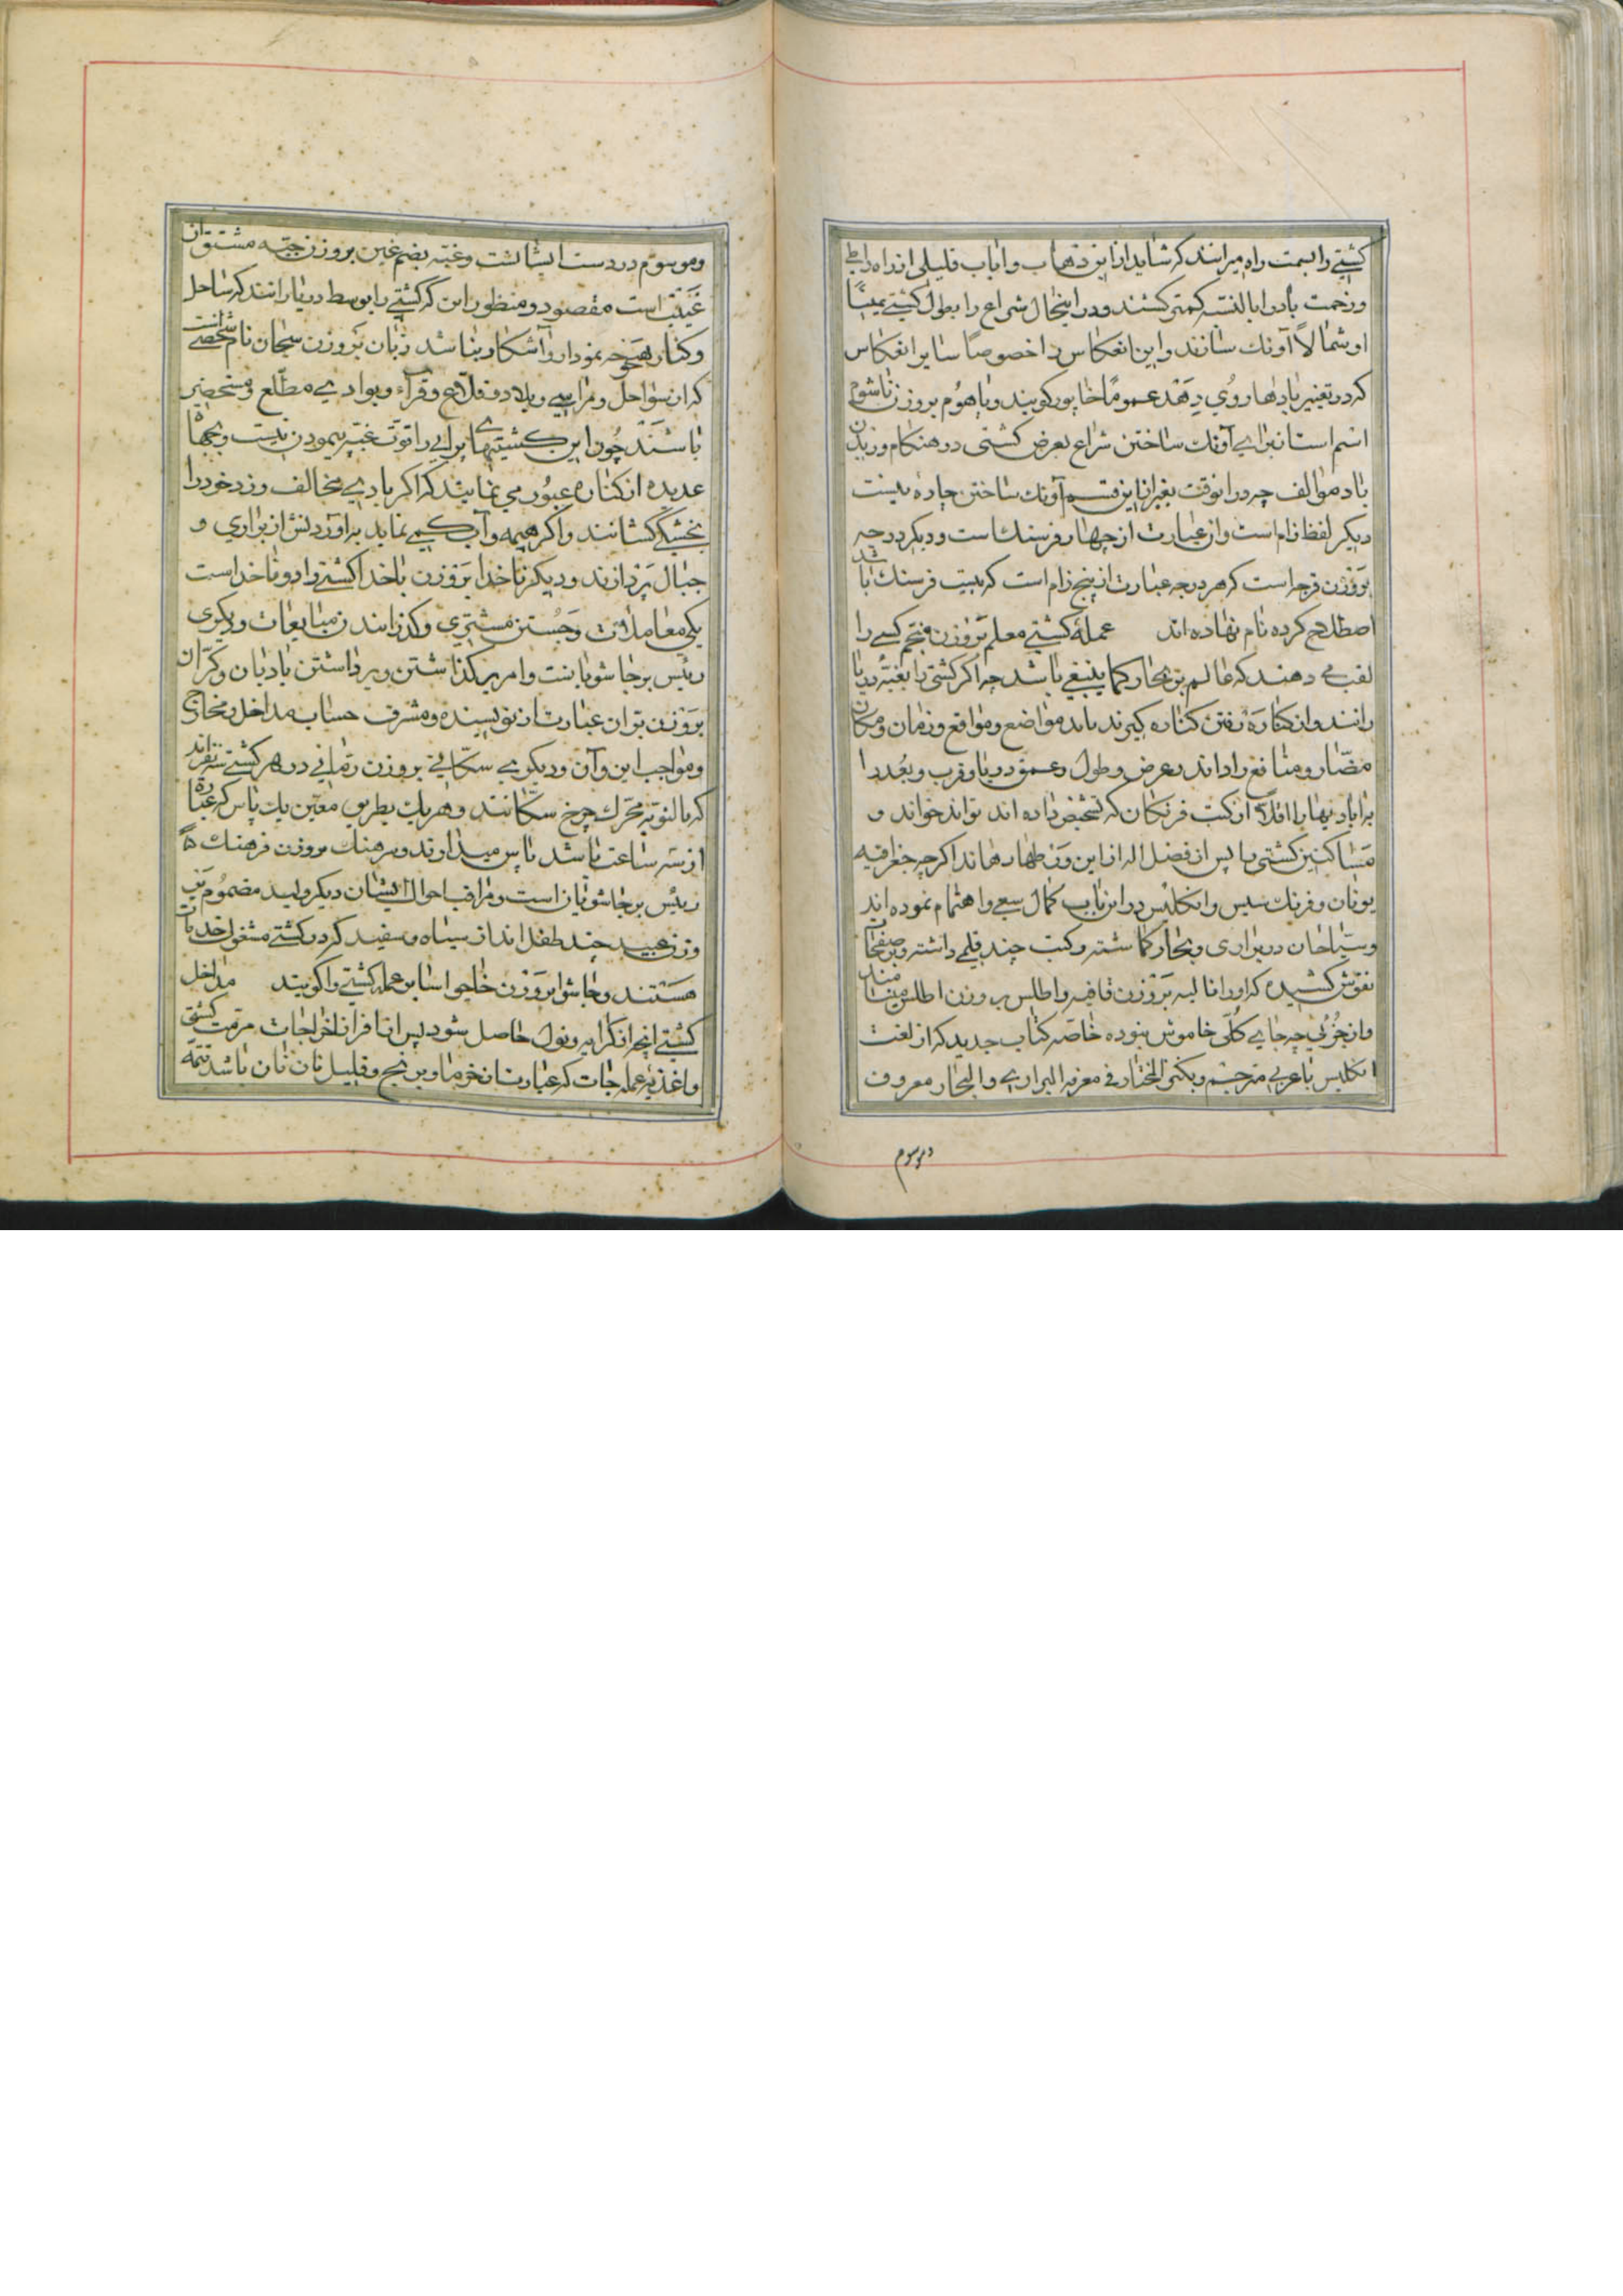 کشتی را بسمت راه میرانند که شاید از این ذهاب و ایاب قلیلی از راه را طی
و زحمت باد را بالنسبه کمتر کشند و در اینحال شراع را بطول کشتی یمیناً
او شمالاً آونك سازند و این انعکاس را خصوصاً سایر انعکاس
که در تغییر بادها روی دهد عموماً خاپور کویند و باهوم بروزن ناشوم
اسم است از برای آونك ساختن شراع بعرض کشتی در هنکام وزیدن
باد موالف چه در انوقت بغیر از این قسم آونك ساختن چاره نیست
دیکر لفظ زام است و از عبارت از چهار فرسنك است و دیکر درجه
بروزن فرجه است که هر درجه عبارت از پنج زام است که بیست فرسنك باشد
اصطلاح کرده نام نهاده اند عملهٔ کشتی معلم بروزن کسی را
لقب می دهند که عالم بر بحار کما ینبغی باشد چه اکر کشتی را بغبهٔ دریا
رانند و از کناره رفتن کناره کیرند باید مواضع و مواقع و زمان و مکان
مضار و منافع را داند و عرض و طول و عمق دریا و قرب و بعد را
اقلاً از کتب فرنکان که تشخیص داده اند تواند خواند و
مساکنین کشتی را پس از فضل اله از این هاند اکرچه جغرافیه
یونان و فرنك سیس و انکلیس در این باب کمال سعی و اهتمام نموده اند
و سیاحان در براری و بحار کماشته و کتب چند قلمی داشته و بر صفحات
نقوش کشیده که او را نالبه بروزن قافیه و اطلس بروزن اطلس مینامند
و از جزئی چه جای کلی خاموش نبوده خاصه کتاب جدید که از لغت
انکلیس بعربی مترجم و بکنز المختار فی معرفه البراری و البحار معروف
وموسوم
و موسوم در دست ایشانست و غبه بضم غین بروزن جبه مشتق از آن
غیبت است مقصود و منظور این که کشتی را بوسط دریا رانند که ساحل
و کنار هیچ نمودار و آشکار نباشد ربان بروزن سبحان نام شخصی است
که از سواحل و مراسی و بلاد و قلاع و قراء و بوادی مطلع و مستحضر
باشند چون این کشتیهای را قوت غبه پیمودن نیست و بجهات
عدیده از کناره عبور می نمایند که اکر بادی مخالف وزد خود را
بخشکی کشانند و اکر هیمه و آب کمی نماید به آوردنش از براری و
جبال پردازند و دیکر ناخدا بروزن باخدا کشتی را دو ناخداست
یکی معاملات و جستن مشتری و کذرانند ن مبایعات و دیکری
رئیس بر جاشویانست و امر بر کذاشتن و برداشتن بادبان و کران
بروزن بران عبارت از نویسنده و مشرف حساب مداخل و مخارج
و مواجب این و آن و دیکری سکانی بروزن رمانی در هر کشتی سه نفراند
که بالنوبه محرك چرخ سکانند و هریك بطریق معین یك پاس که عبارة
از سه ساعت باشد پاس میدارند و سرهنك بروزن فرهنك که
رئیس بر جاشویان است و مراقب احوال ایشان دیکر ولید مضموم
وزن عبید چند طفل اند از سیاه و سفید که در کشتی مشغول خدمات
هستند و جاشو بروزن خالو سایر عمله کشتی را کویند مداخل
کشتی انچه از کرایه و نول حاصل شود پس از افراز اخراجات مرمت کشتی
و اغذیهٔ عمله جات که عبارت از خرما و برنج و قلیل نان نان باشد تتمه